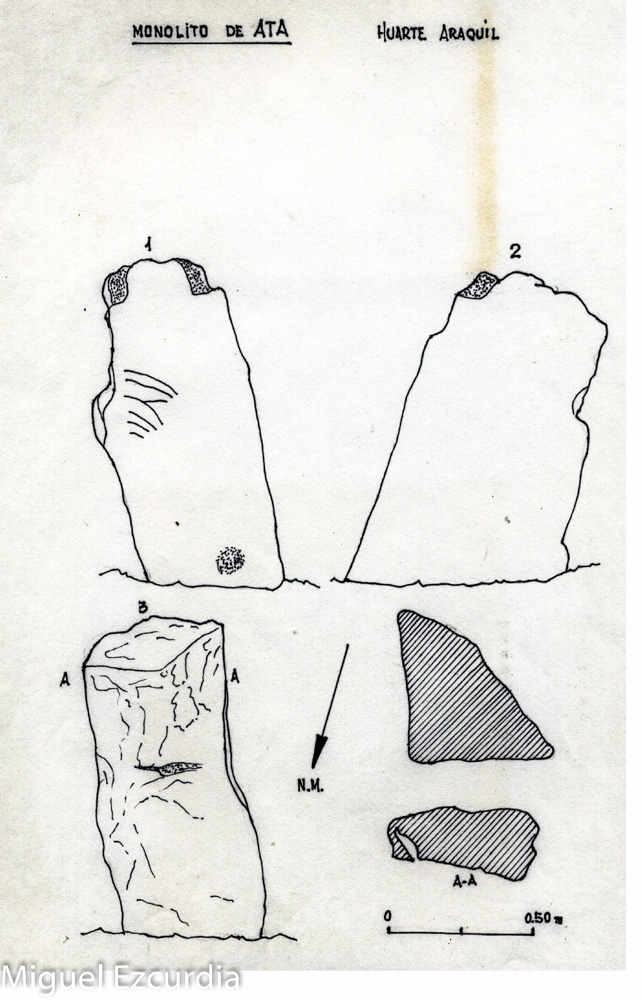 MONOLITO DE ATA HUARTE ARAQUIL
1
2
3
A A
N.M.
A-A
0 0.50 m
Miguel Ezcurdia